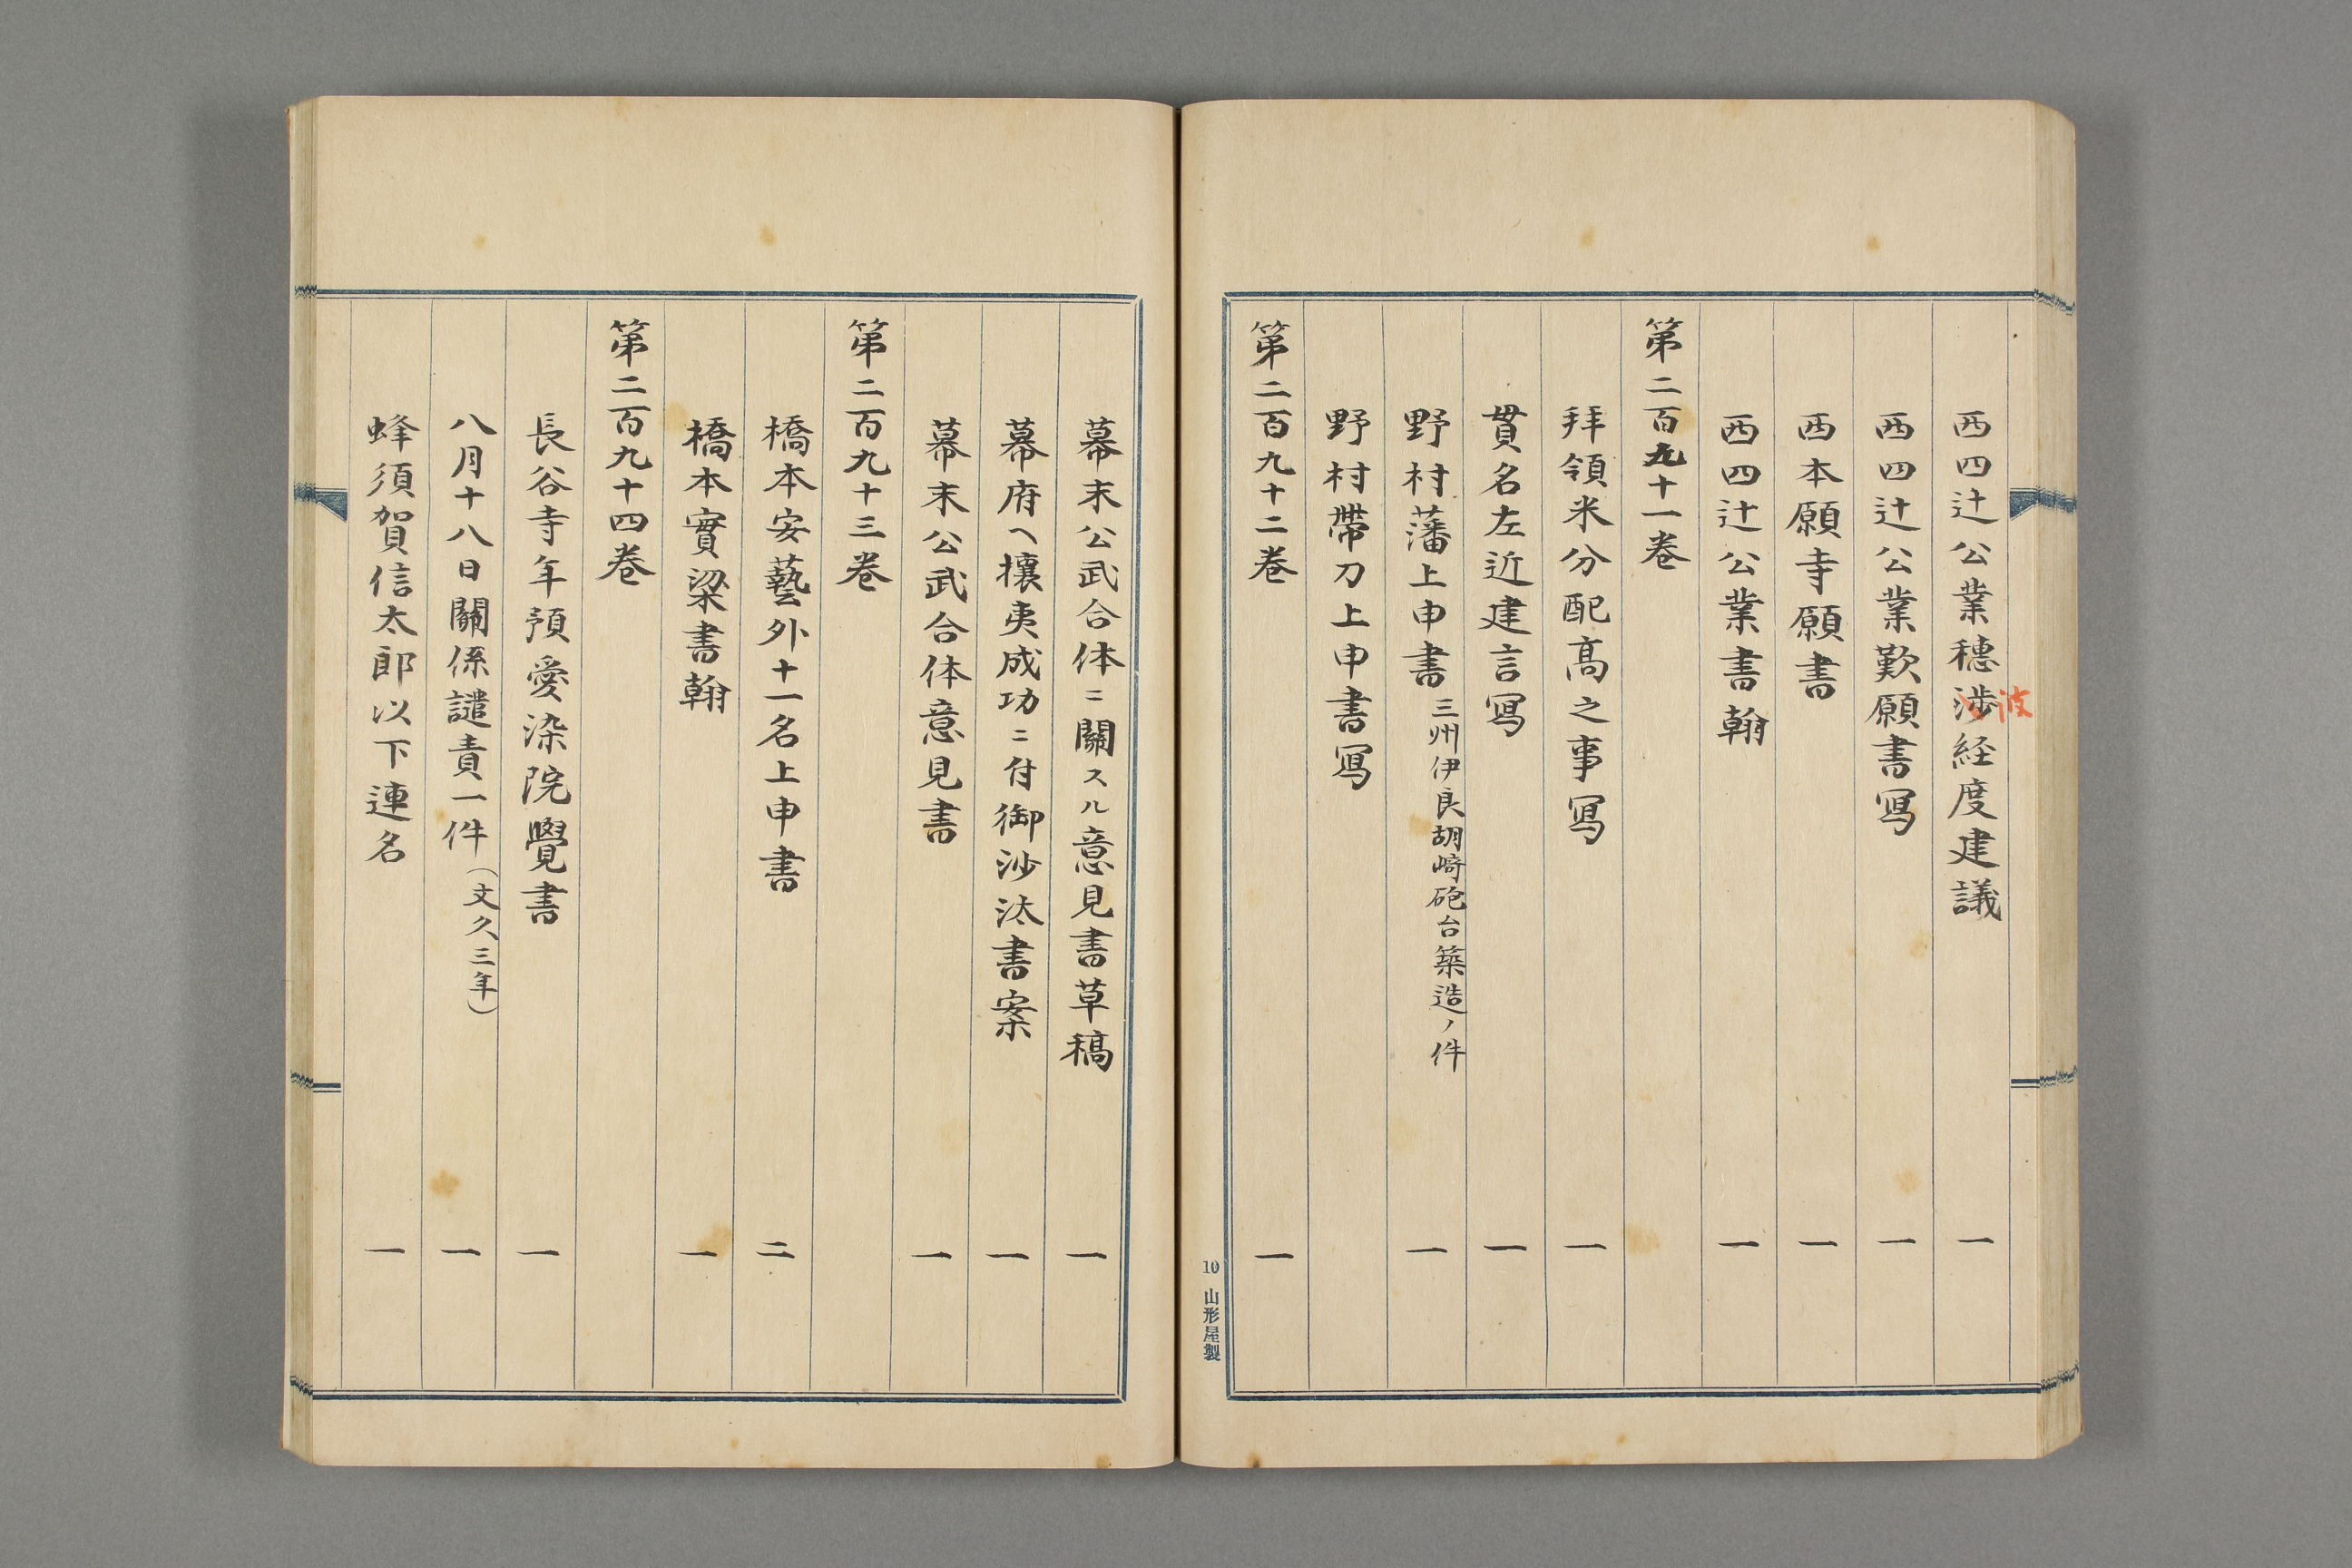 西四辻公業穗渉経度建議 一
波
西四辻公業歎願書寫 一
西本願寺願書 一
西四辻公業書翰 一
第二百九十一巻
拜領米分配高之事寫 一
貫名左近建言寫 一
野村藩上申書 三州伊良胡崎砲台築造ノ件 一
野村帶刀上申書寫
第二百九十二巻 一
10 山形屋製
幕末公武合体ニ關スル意見書草稿 一
幕府ヘ攘夷成功ニ付御沙汰書案 一
幕末公武合体意見書 一
第二百九十三巻
橋本安藝外十一名上申書 二
橋本實梁書翰 一
第二百九十四巻
長谷寺年預愛染院覺書 一
八月十八日關係譴責一件(文久三年) 一
蜂須賀信太郎以下連名 一